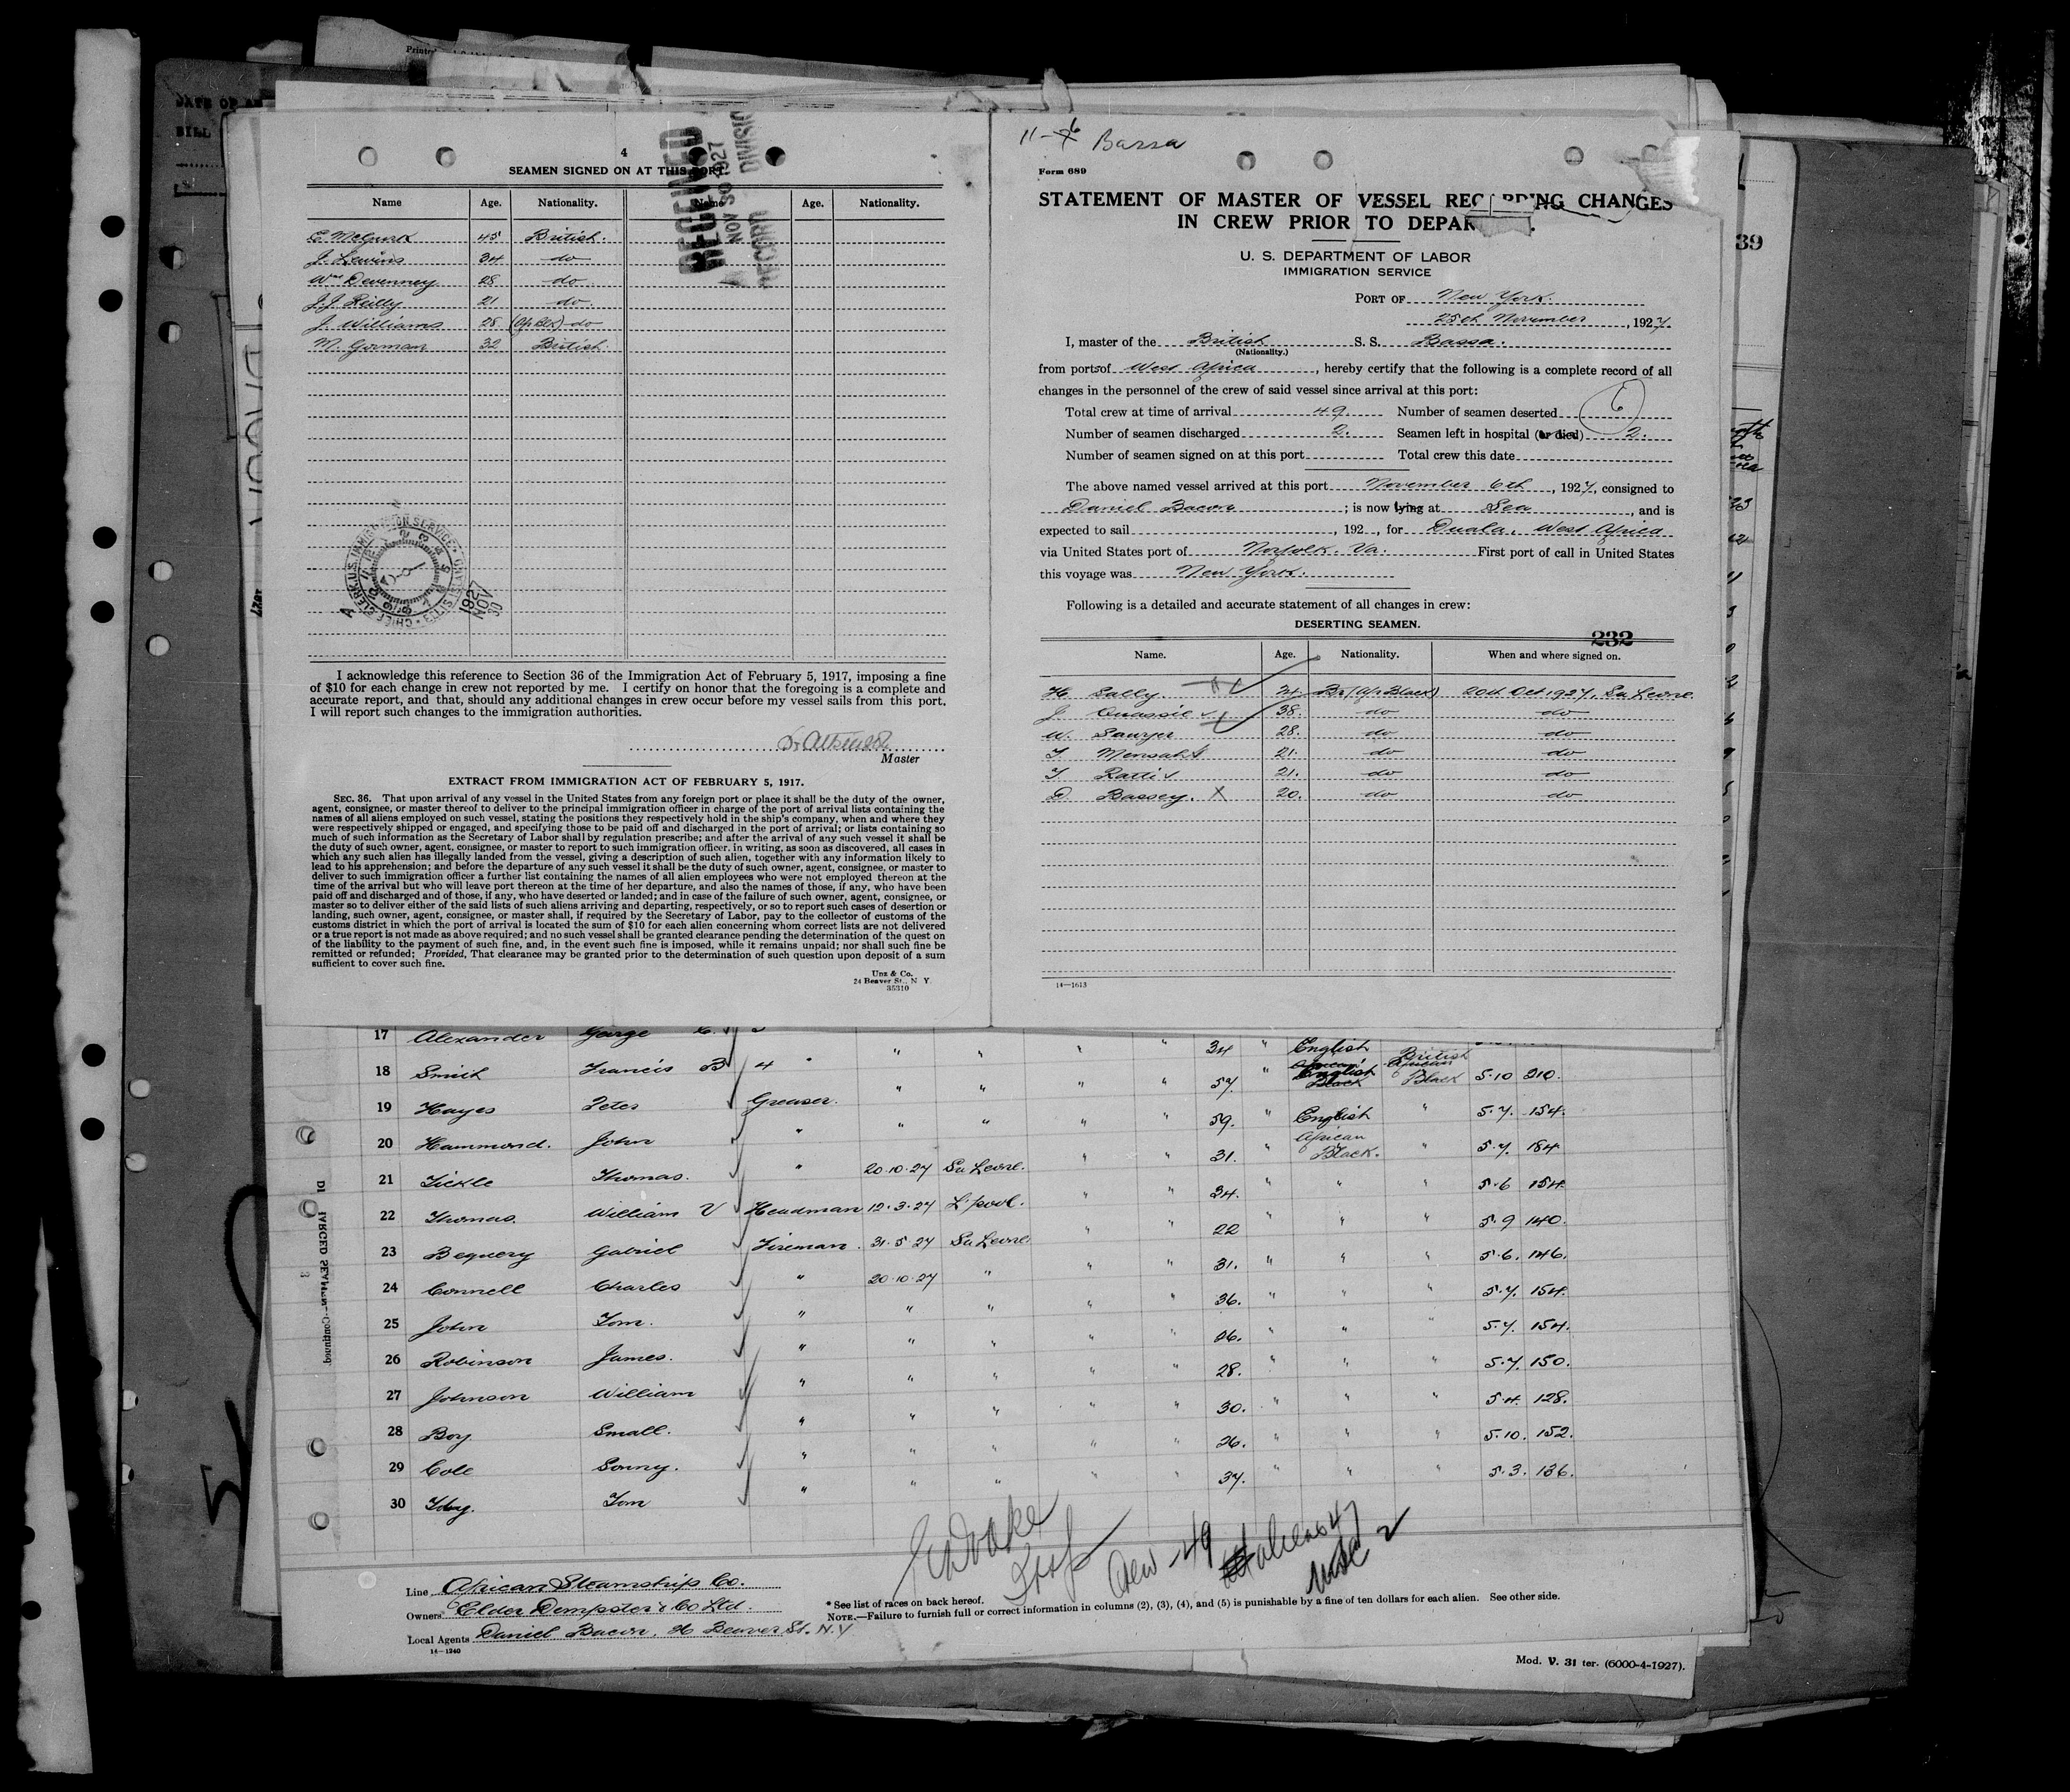 4
SEAMEN SIGNED ON AT THIS PORT.
Name Age. Nationality. Name Age. Nationality.
RECEIVED
NOV 30 1927
RECORD DIVISION
E. McGurk 45 British.
J. Lewins 34 do
Wm Devenney 28 do.
J.J. Reilly 21 do.
J. Williams 28 (Af Blk) do
M. Gorman 32 British.
CHIEF CLERK U.S. IMMIGRATION SERVICE
1927 NOV 30
I acknowledge this reference to Section 36 of the Immigration Act of February 5, 1917, imposing a fine
of $10 for each change in crew not reported by me. I certify on honor that the foregoing is a complete and
accurate report, and that, should any additional changes in crew occur before my vessel sails from this port,
I will report such changes to the immigration authorities.
Master
EXTRACT FROM IMMIGRATION ACT OF FEBRUARY 5, 1917.
SEC. 36. That upon arrival of any vessel in the United States from any foreign port or place it shall be the duty of the owner,
agent, consignee, or master thereof to deliver to the principal immigration officer in charge of the port of arrival lists containing the
names of all aliens employed on such vessel, stating the positions they respectively hold in the ship's company, when and where they
were respectively shipped or engaged, and specifying those to be paid off and discharged in the port of arrival; or lists containing so
much of such information as the Secretary of Labor shall by regulation prescribe; and after the arrival of any such vessel it shall be
the duty of such owner, agent, consignee, or master to report to such immigration officer, in writing, as soon as discovered, all cases in
which any such alien has illegally landed from the vessel, giving a description of such alien, together with any information likely to
lead to his apprehension; and before the departure of any such vessel it shall be the duty of such owner, agent, consignee, or master to
deliver to such immigration officer a further list containing the names of all alien employees who were not employed thereon at the
time of the arrival but who will leave port thereon at the time of her departure, and also the names of those, if any, who have been
paid off and discharged and of those, if any, who have deserted or landed; and in case of the failure of such owner, agent, consignee, or
master so to deliver either of the said lists of such aliens arriving and departing, respectively, or so to report such cases of desertion or
landing, such owner, agent, consignee, or master shall, if required by the Secretary of Labor, pay to the collector of customs of the
customs district in which the port of arrival is located the sum of $10 for each alien concerning whom correct lists are not delivered
or a true report is not made as above required; and no such vessel shall be granted clearance pending the determination of the quest on
of the liability to the payment of such fine, and, in the event such fine is imposed, while it remains unpaid; nor shall such fine be
remitted or refunded; Provided, That clearance may be granted prior to the determination of such question upon deposit of a sum
sufficient to cover such fine.
Unz & Co.
24 Beaver St., N. Y.
35310
11-6 Bassa
Form 689
STATEMENT OF MASTER OF VESSEL REGARDING CHANGES
IN CREW PRIOR TO DEPAR
U. S. DEPARTMENT OF LABOR
IMMIGRATION SERVICE
PORT OF New York.
25th November, 1927.
I, master of the British S. S. Bassa.
(Nationality.)
from ports of West Africa, hereby certify that the following is a complete record of all
changes in the personnel of the crew of said vessel since arrival at this port:
Total crew at time of arrival 49. Number of seamen deserted 6
Number of seamen discharged 2. Seamen left in hospital (or died) 2.
Number of seamen signed on at this port Total crew this date
The above named vessel arrived at this port November 6th, 1927, consigned to
Daniel Bacon; is now lying at Sea, and is
expected to sail, 192, for Duala, West Africa
via United States port of Norfolk. Va. First port of call in United States
this voyage was New York.
Following is a detailed and accurate statement of all changes in crew:
DESERTING SEAMEN.
232
Name. Age. Nationality. When and where signed on.
H. Sally. 24 Br (Af Black) 20th Oct 1927, Sa Leone.
J. Quassie 38. do do
W. Sawyer 28. do do
T. Mensah 21. do do
T. Ratti 21. do do
D Bassey. X 20. do do
14—1613
17 Alexander George 34 " English
18 Smith Francis B 4 " 57. " Black British African Black 5.10 210.
19 Hayes Peter Greaser. 59. " English " 5.7. 154.
20 Hammond. John " 31. " African Black. " 5.7. 184
21 Tickle Thomas. " 20.10.27 Sa Leone. 34. " " " 5.6 154.
22 Thomas. William V Headman 12.3.27 L'pool. 22 " " " 5.9 140.
23 Bequery Gabriel Fireman. 31.5.27 Sa Leone 31. " " " 5.6. 146.
24 Connell Charles " 20.10.27 " 36. " " " 5.7. 154.
25 John Tom. " " " 26. " " " 5.7. 154.
26 Robinson James. " " " 28. " " " 5.7. 150.
27 Johnson William " " " 30. " " " 5.4. 128.
28 Boy Small. " " " 26. " " " 5.10. 152.
29 Cole Sonny. " " " 37. " " " 5.3. 136.
30 Toby. Tom "
Crew - 49 aliens 47
USC 2
Line African Steamship Co.
Owners Elder Dempster & Co Ltd.
Local Agents Daniel Bacon, 26 Beaver St. N.Y
14—1240
* See list of races on back hereof.
NOTE.—Failure to furnish full or correct information in columns (2), (3), (4), and (5) is punishable by a fine of ten dollars for each alien. See other side.
Mod. V. 31 ter. (6000-4-1927).
39